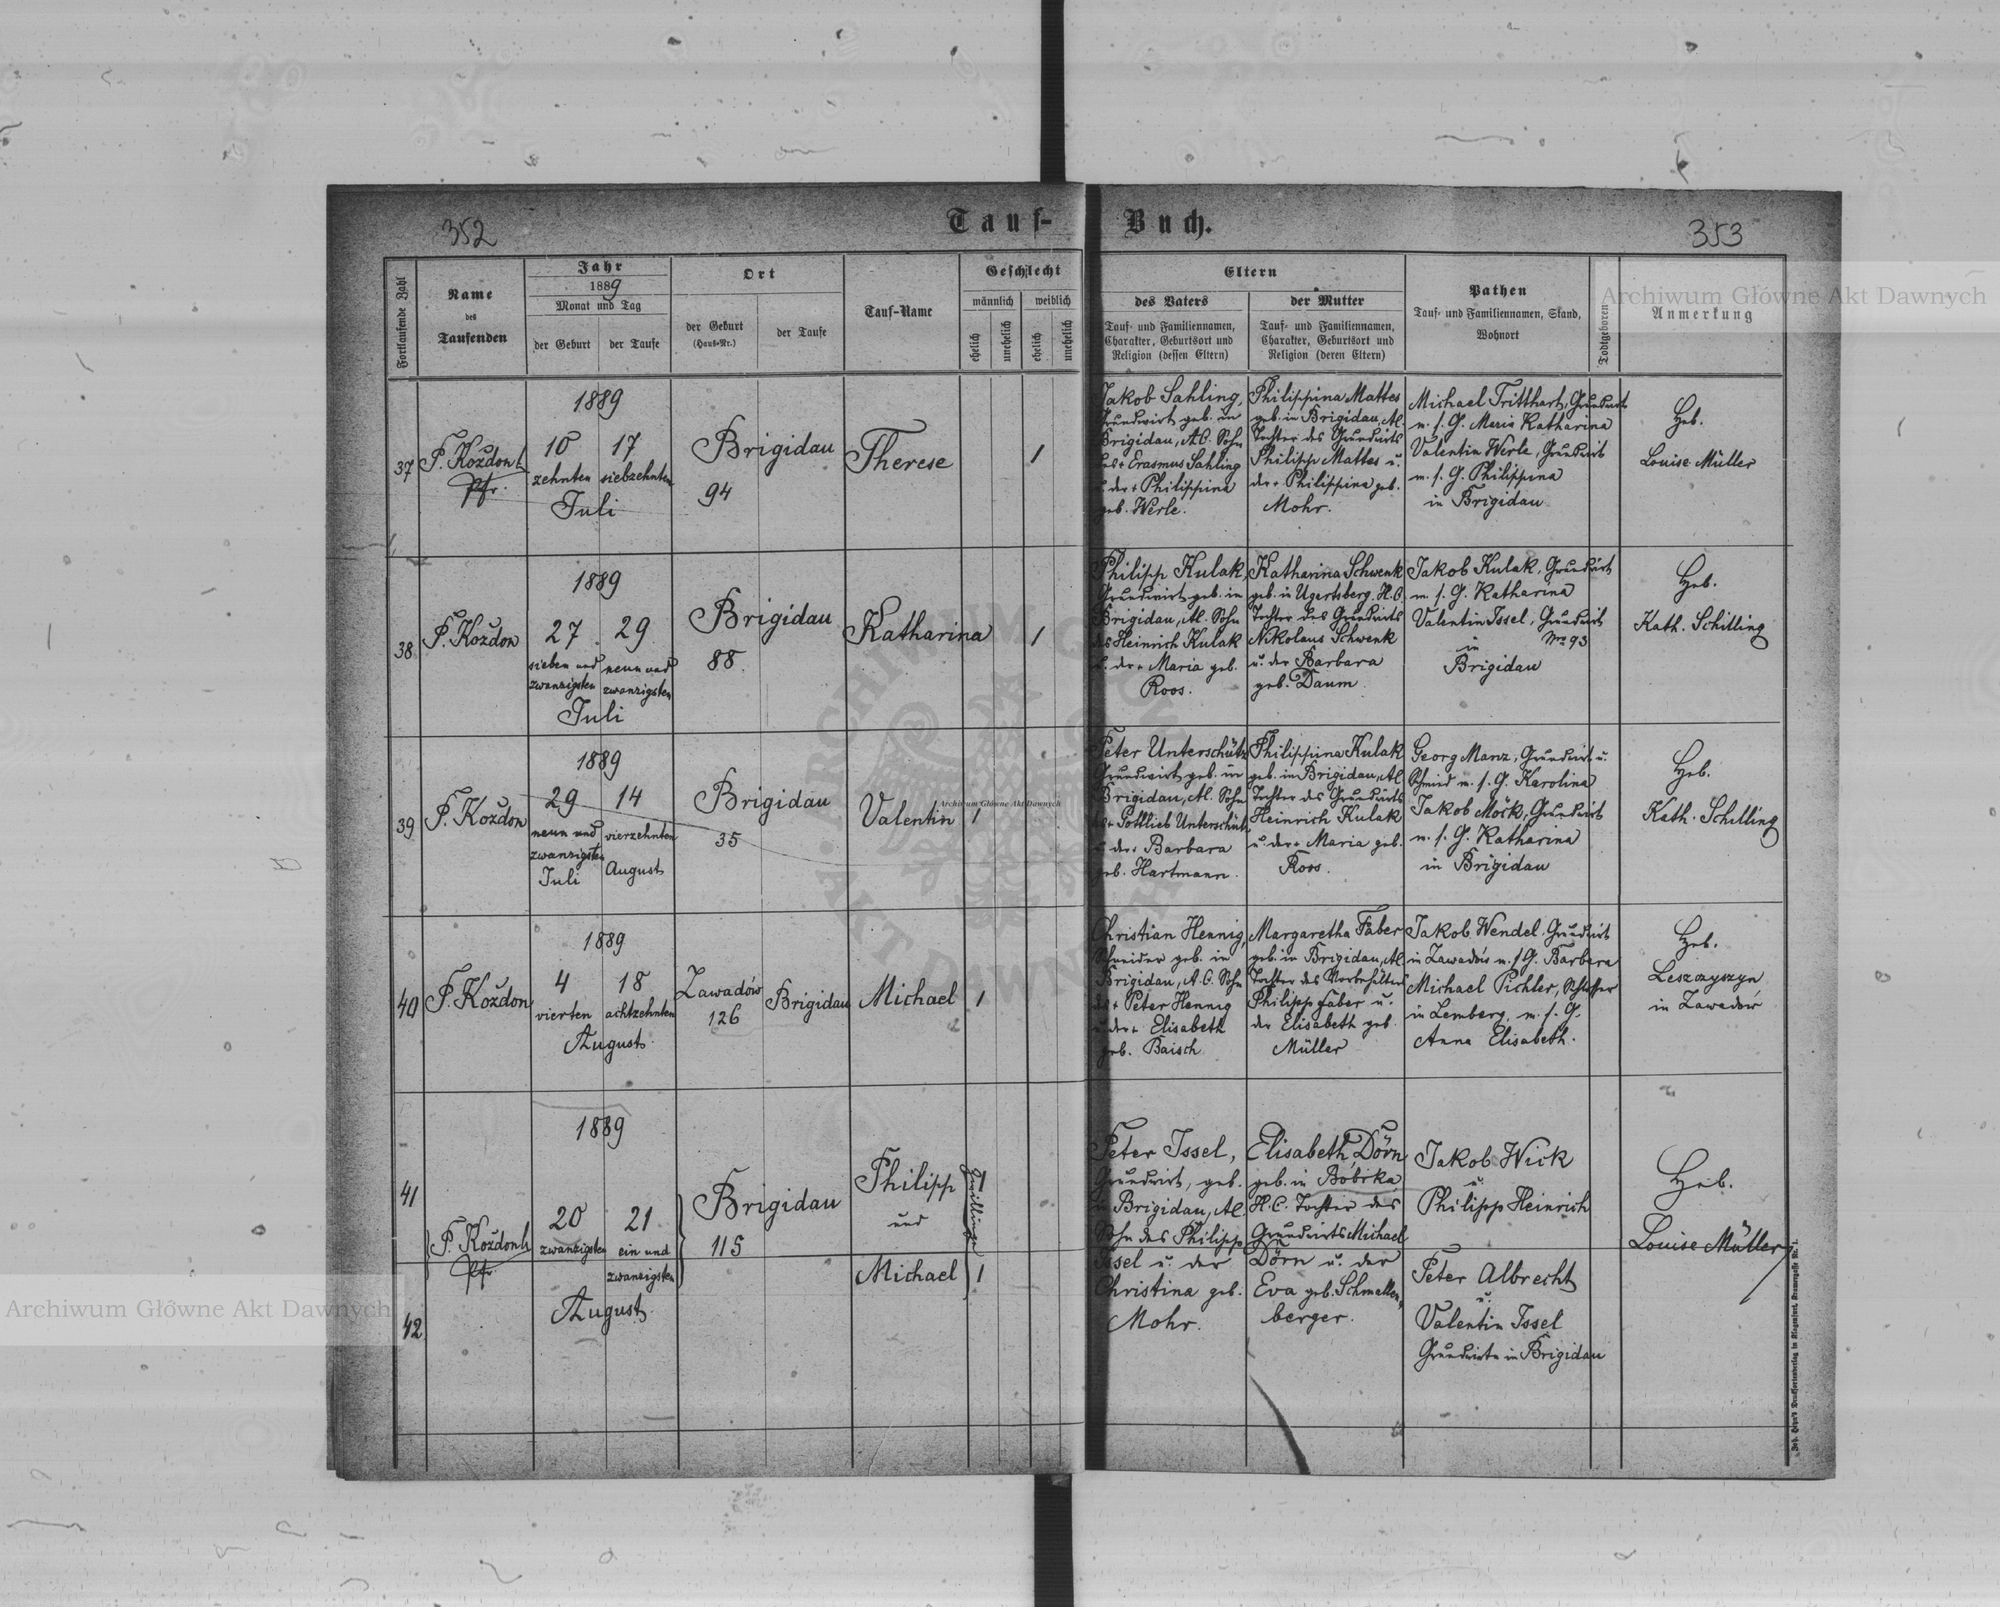 352
Tauf-
Buch.
353
Fortlaufende Zahl
Name
des
Taufenden
Jahr
1889
Monat und Tag
der Geburt
der Taufe
Ort
der Geburt
(Haus-Nr.)
der Taufe
Tauf-Name
Geschlecht
männlich
weiblich
ehelich
unehelich
ehelich
unehelich
Eltern
des Vaters
Tauf- und Familiennamen,
Charakter, Geburtsort und
Religion (dessen Eltern)
der Mutter
Tauf- und Familiennamen,
Charakter, Geburtsort und
Religion (deren Eltern)
Pathen
Tauf- und Familiennamen, Stand,
Wohnort
Todtgeboren
Anmerkung
Archiwum Główne Akt Dawnych
37
F. Koždon
Pfr.
1889
10
zehnten
17
siebzehnten
Juli
Brigidau
94
Therese
1
Jakob Sahling,
Grundwirt geb. in
Brigidau, A.C. Sohn
des + Erasmus Sahling
u. der + Philippina
geb. Werle.
Philippina Mattes
geb. in Brigidau, A.C.
Tochter des Grundwirts
Philipp Mattes u.
der + Philippina geb.
Mohr.
Michael Tritthart, Grundwirt
m. s. G. Maria Katharina
Valentin Werle, Grundwirt
m. s. G. Philippina
in Brigidau
Heb.
Louise Müller
38
F. Koždon
1889
27
sieben und
zwanzigsten
29
neun und
zwanzigsten
Juli
Brigidau
88
Katharina
1
Philipp Kulak,
Grundwirt geb. in
Brigidau, A.C. Sohn
des Heinrich Kulak
u. der + Maria geb.
Roos.
Katharina Schwenk
geb. in Ugartsberg, H.C.
Tochter des Grundwirts
Nikolaus Schwenk
u. der Barbara
geb. Daum.
Jakob Kulak, Grundwirt
m. s. G. Katharina
Valentin Issel, Grundwirt
No 93
in
Brigidau
Heb.
Kath. Schilling
39
F. Koždon
1889
29
neun und
zwanzigsten
Juli
14
vierzehnten
August
Brigidau
35
Valentin
1
Peter Unterschütz
Grundwirt geb. in
Brigidau, A.C. Sohn
des + Gottlieb Unterschütz
u. der + Barbara
geb. Hartmann.
Philippina Kulak
geb. in Brigidau, A.C.
Tochter des Grundwirts
Heinrich Kulak
u. der + Maria geb.
Roos.
Georg Manz, Grundwirt u.
Schmied m. s. G. Karolina
Jakob Möck, Grundwirt
m. s. G. Katharina
in Brigidau
Heb.
Kath. Schilling
40
F. Koždon
1889
4
vierten
18
achtzehnten
August
Zawadów
126
Brigidau
Michael
1
Christian Hennig,
Schneider geb. in
Brigidau, A.C. Sohn
des + Peter Hennig
u. der + Elisabeth
geb. Baisch
Margaretha Faber
geb. in Brigidau, A.C.
Tochter des
Philipp Faber u.
der Elisabeth geb.
Müller
Jakob Wendel, Grundwirt
in Zawadów m. s. G. Barbara
Michael Pichler, Schlosser
in Lemberg, m. s. G.
Anna Elisabeth.
Heb.
Leszczyszyn
in Zawadów
41
42
F. Koždon
Pfr.
1889
20
zwanzigsten
21
ein und
zwanzigsten
August
Brigidau
115
Philipp
und
Michael
Zwillinge
1
1
Peter Issel,
Grundwirt, geb.
in Brigidau, A.C.
Sohn des Philipp
Issel u. der
Christina geb.
Mohr.
Elisabeth Dörn
geb. in Bobrka
H.C. Tochter des
Grundwirts Michael
Dörn u. der
Eva geb. Schmallen-
berger.
Jakob Wick
u.
Philipp Heinrich
Peter Albrecht
u.
Valentin Issel
Grundwirte in Brigidau
Heb.
Louise Müller
Archiwum Główne Akt Dawnych
Archiwum Główne Akt Dawnych